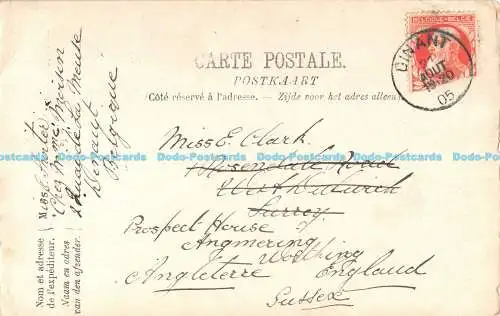 BELGIQUE-BELGIË
DINANT
AOUT
05
CARTE POSTALE.
POSTKAART
Côté réservé à l'adresse. — Zijde voor het adres
Nom et adresse
de l'expéditeur.
Naam en adres
van den afzender.
Chez Mme
Quai de la Meuse
Dinant
Belgique
Miss E. Clark.
Rosendale Road
West Dulwich
Surrey
Prospect House
Angmering
Worthing
Angleterre England
Sussex
Dodo-Postcards Dodo-Postcards Dodo-Postcards Dodo-Postcards Dodo-Postcards Dodo-Postcards